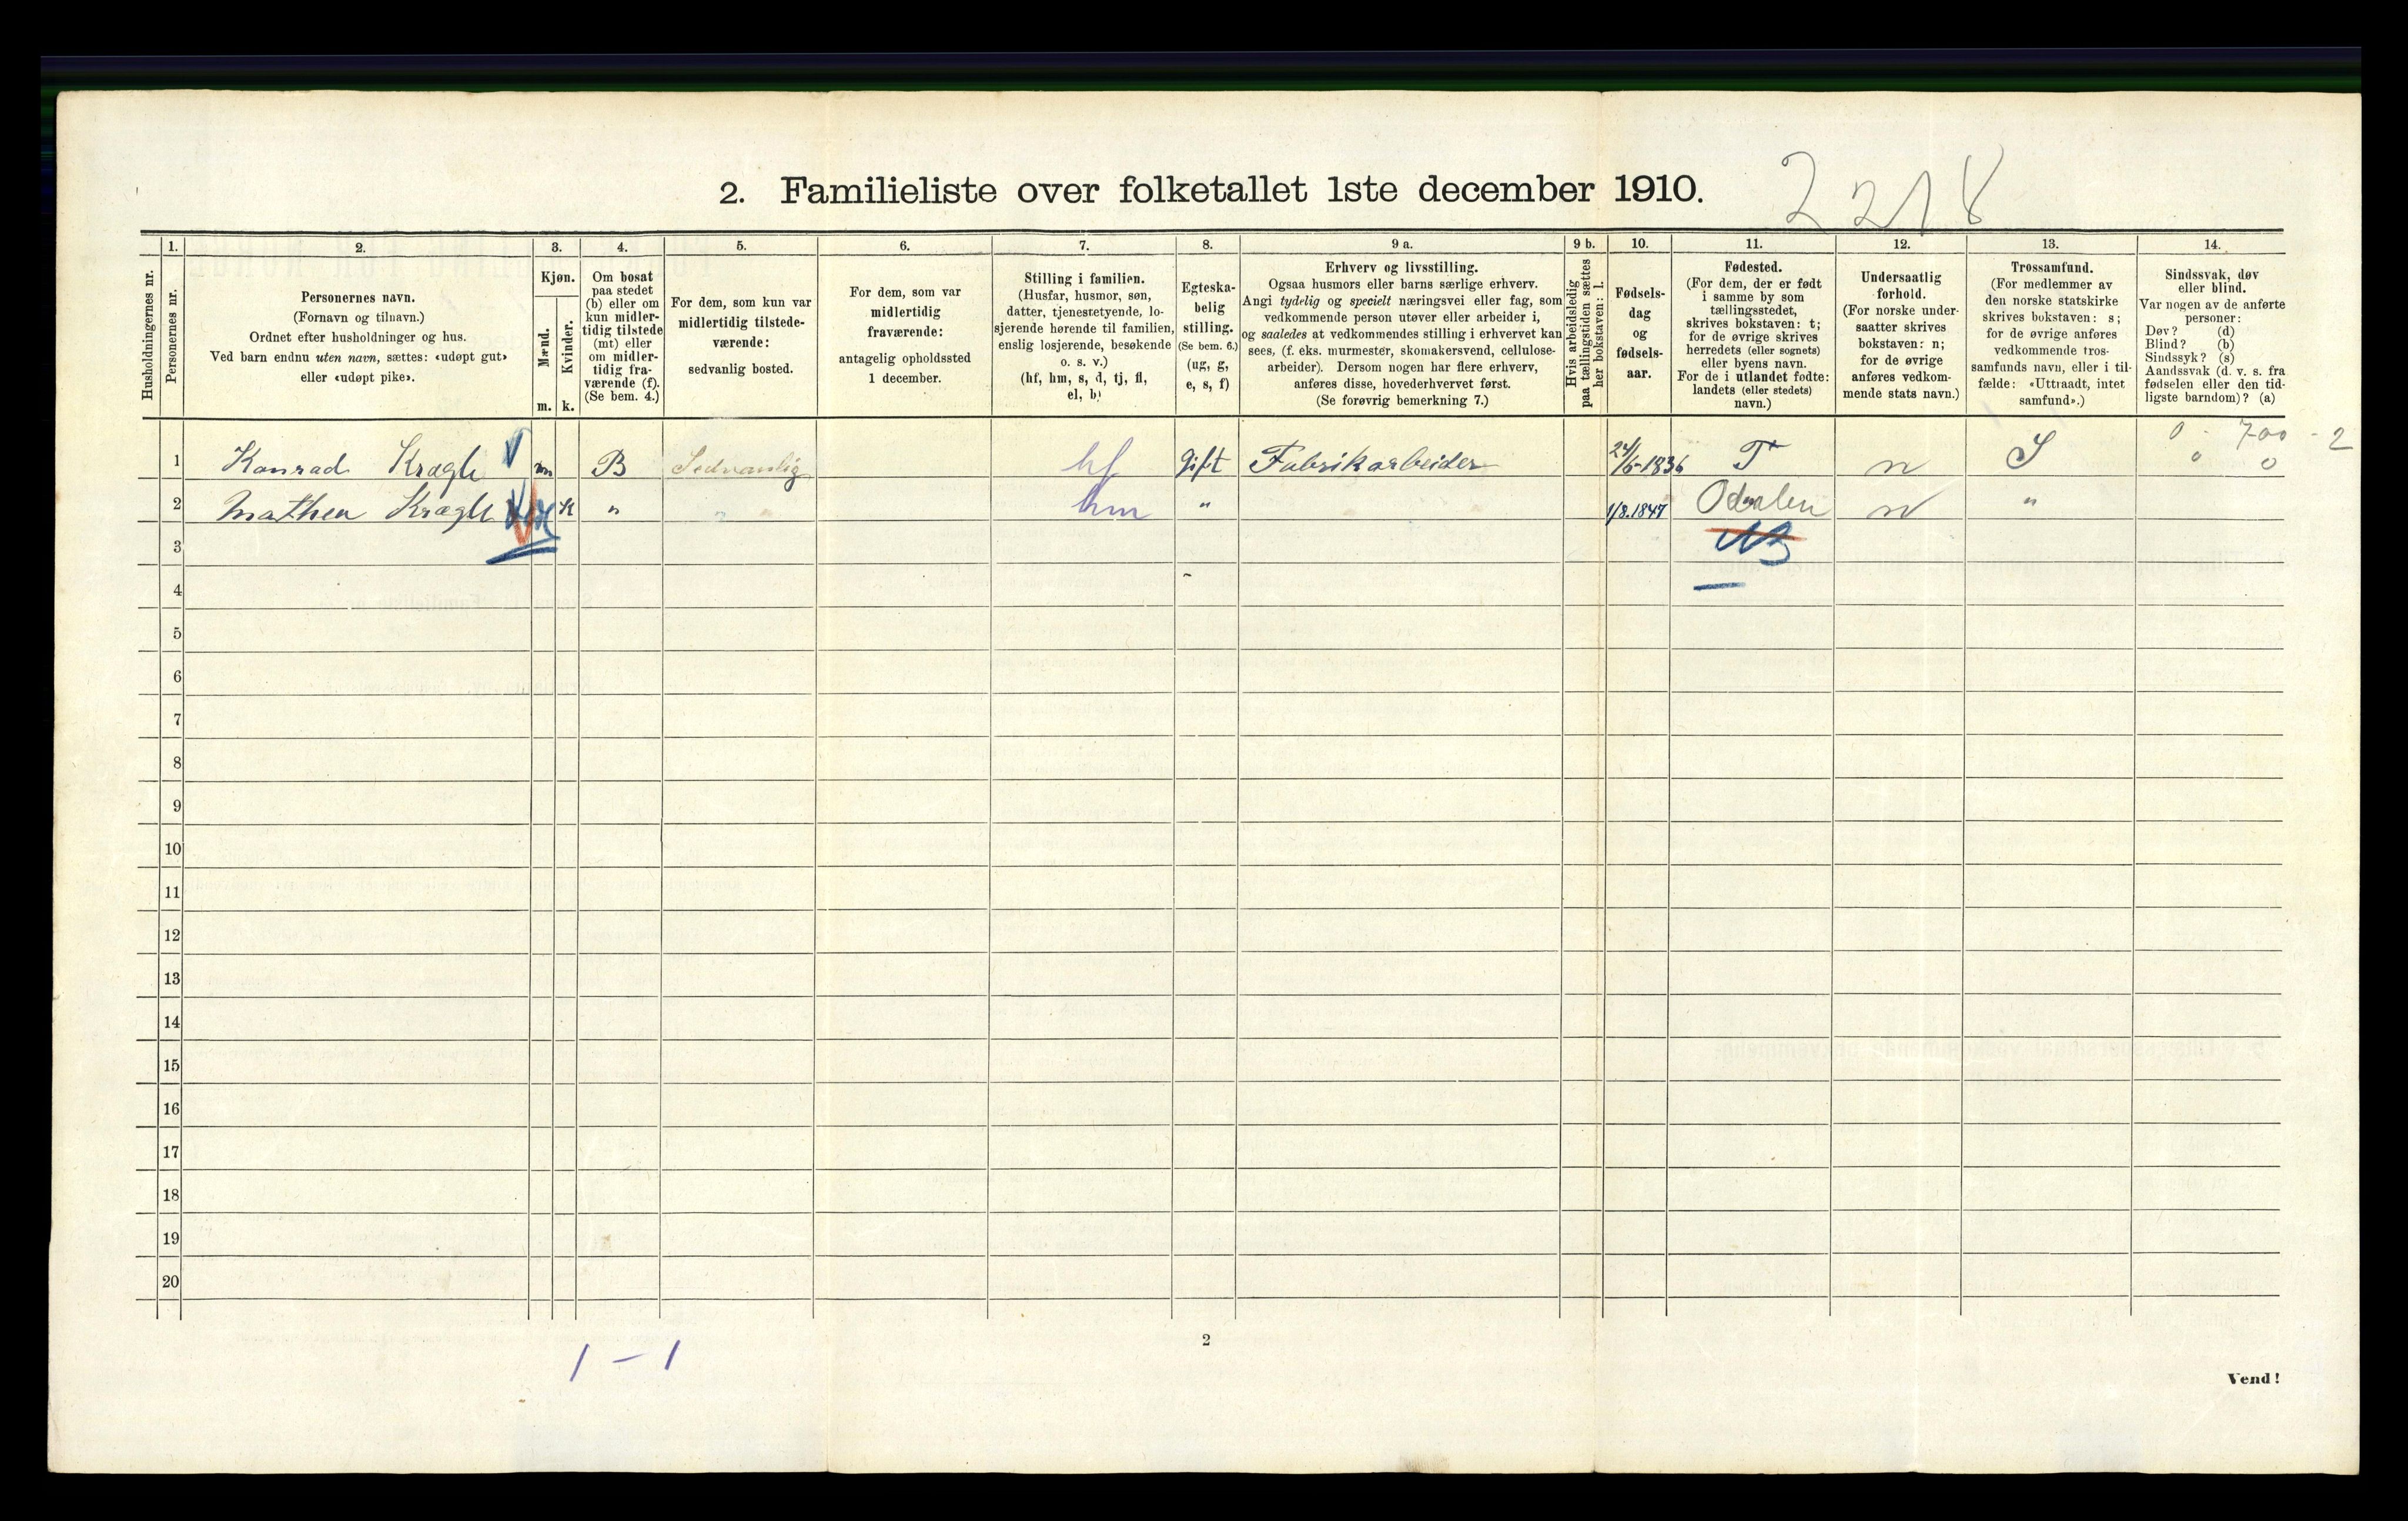 2. Familieliste over folketallet 1ste december 1910.
2218
Husholdningernes nr.
1.
Personernes nr.
2.
Personernes navn.
(Fornavn og tilnavn.)
Ordnet efter husholdninger og hus.
Ved barn endnu uten navn, sættes: «udøpt gut»
eller «udøpt pike».
3.
Kjøn.
Mænd.
Kvinder.
m. k.
4.
Om bosat
paa stedet
(b) eller om
kun midler-
tidig tilstede
(mt) eller
om midler-
tidig fra-
værende (f).
(Se bem. 4.)
5.
For dem, som kun var
midlertidig tilstede-
værende:
sedvanlig bosted.
6.
For dem, som var
midlertidig
fraværende:
antagelig opholdssted
1 december.
7.
Stilling i familien.
(Husfar, husmor, søn,
datter, tjenestetyende, lo-
sjerende hørende til familien,
enslig losjerende, besøkende
o. s. v.)
(hf, hm, s, d, tj, fl,
el, b)
8.
Egteska-
belig
stilling.
(Se bem. 6.)
(ug, g,
e, s, f)
9 a.
Erhverv og livsstilling.
Ogsaa husmors eller barns særlige erhverv.
Angi tydelig og specielt næringsvei eller fag, som
vedkommende person utøver eller arbeider i,
og saaledes at vedkommendes stilling i erhvervet kan
sees, (f. eks. murmester, skomakersvend, cellulose-
arbeider). Dersom nogen har flere erhverv,
anføres disse, hovederhvervet først.
(Se forøvrig bemerkning 7.)
9 b.
Hvis arbeidsledig
paa tællingstiden sættes
her bokstaven: l.
10.
Fødsels-
dag
og
fødsels-
aar.
11.
Fødested.
(For dem, der er født
i samme by som
tællingsstedet,
skrives bokstaven: t;
for de øvrige skrives
herredets (eller sognets)
eller byens navn.
For de i utlandet fødte:
landets (eller stedets)
navn.)
12.
Undersaatlig
forhold.
(For norske under-
saatter skrives
bokstaven: n;
for de øvrige
anføres vedkom-
mende stats navn.)
13.
Trossamfund.
(For medlemmer av
den norske statskirke
skrives bokstaven: s;
for de øvrige anføres
vedkommende tros-
samfunds navn, eller i til-
fælde: «Uttraadt, intet
samfund».)
14.
Sindssvak, døv
eller blind.
Var nogen av de anførte
personer:
Døv? (d)
Blind? (b)
Sindssyk? (s)
Aandssvak (d. v. s. fra
fødselen eller den tid-
ligste barndom)? (a)
0 - 700 - 2
1 Konrad Krogh m B Sedvanlig hf Gift Fabrikarbeider 24/6-1836 T n S 0 0
2 Mathea Krogh k " " hm " 1/8.1847 Odalen n "
3
4
5
6
7
8
9
10
11
12
13
14
15
16
17
18
19
20
2
1 - 1
Vend!